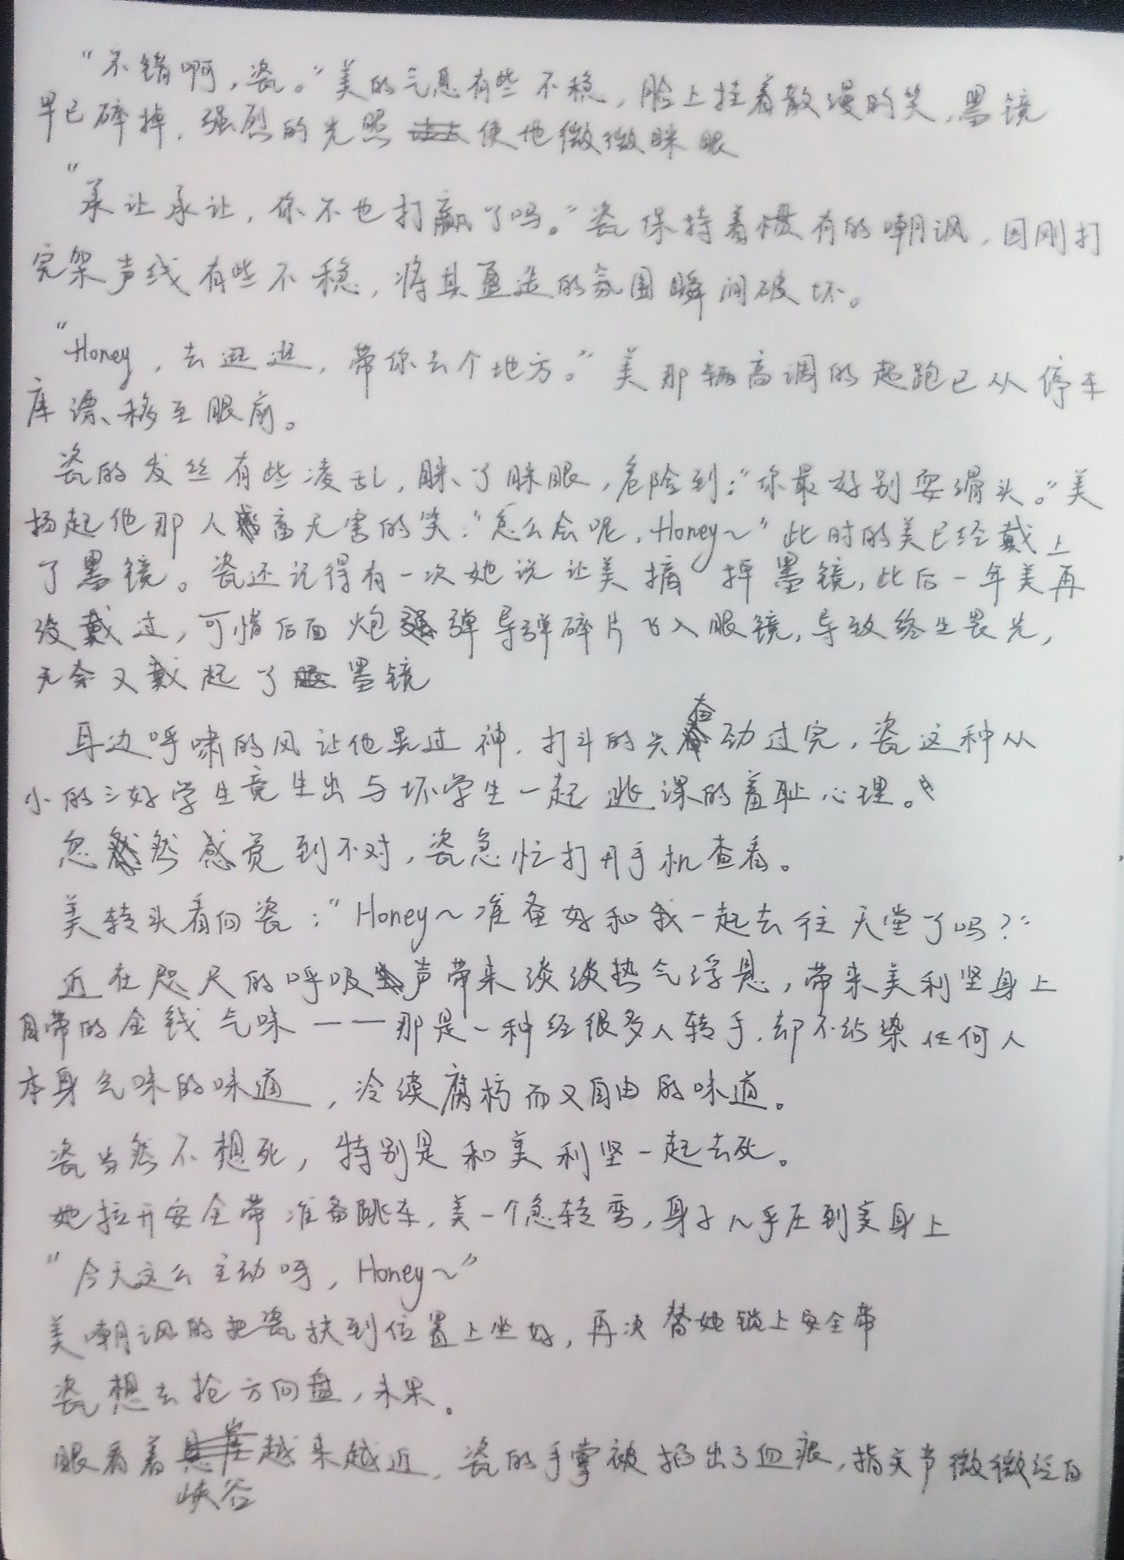 “不错啊，瓷。”美的气息有些不稳，脸上挂着散漫的笑，墨镜
早已碎掉，强烈的光照使他微微眯眼
“承让承让，你不也打赢了吗。”瓷保持着惯有的嘲讽，因刚打
完架声线有些不稳，将其营造的氛围瞬间破坏。
“Honey，去逛逛，带你去个地方。”美那辆高调的超跑已从停车
库漂移至眼前。
瓷的发丝有些凌乱，眯了眯眼，危险到：“你最好别耍滑头。”美
扬起他那人畜无害的笑：“怎么会呢，Honey～”此时的美已经戴上
了墨镜。瓷还记得有一次她说让美摘掉墨镜，此后一年美再
没戴过，可惜后面炮弹导弹碎片飞入眼镜，导致终生畏光，
无奈又戴起了墨镜
耳边呼啸的风让他晃过神，打斗的兴奋劲过完，瓷这种从
小的三好学生竟生出与坏学生一起逃课的羞耻心理。
忽然感觉到不对，瓷急忙打开手机查看。
美转头看向瓷：“Honey～准备好和我一起去往天堂了吗？”
近在咫尺的呼吸声带来淡淡热气浮息，带来美利坚身上
自带的金钱气味——那是一种经很多人转手，却不沾染任何人
本身气味的味道，冷漠腐朽而又自由的味道。
瓷当然不想死，特别是和美利坚一起去死。
她拉开安全带准备跳车，美一个急转弯，身子几乎压到美身上
“今天这么主动呀，Honey～”
美嘲讽的把瓷扶到位置上坐好，再次替她锁上安全带
瓷想去抢方向盘，未果。
眼看着峡谷越来越近，瓷的手掌被掐出了血痕，指关节微微泛白